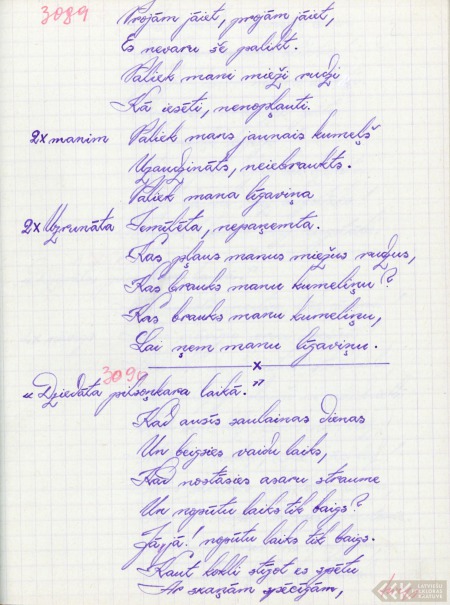 3089
Projām jāiet, projām jāiet,
Es nevaru še palikt.
Paliek mani mieži rudzi
Kā iesēti, nenopļauti.
2x manim Paliek mans jaunais kumeļš
Uzaudzināts, neiebraukts.
Paliek mana līgaviņa
2x Uzrunāta Iemīlēta, nepaņemta.
Kas pļaus manus miežus rudzus,
Kas brauks manu kumeliņu?
Kas brauks manu kumeliņu,
Lai ņem manu līgaviņu.
x
3090
„Dziedāta pilsoņkara laikā."
Kad ausīs saulainas dienas
Un beigsies vaidu laiks,
Kad nostāsies asaru straume
Un nopūtu laiks tik baigs?
Jā, jā! nopūtu laiks tik baigs.
Kaut kokli stīgot es spētu
Ar skaņām spēcīgām,
LATVIEŠU FOLKLORAS KRĀTUVE